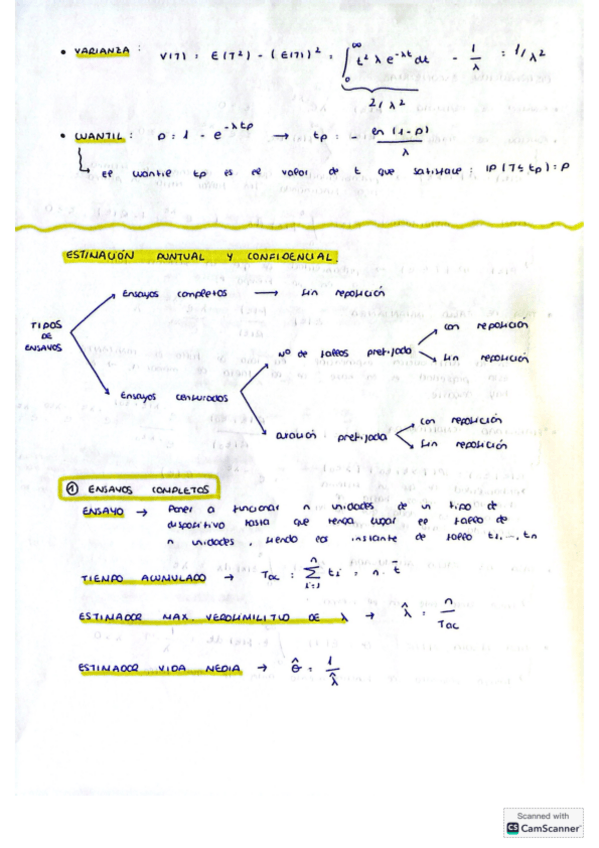 • VARIANZA : V(T) = E(T²) - (E(T))² = ∫₀^∞ t² λ e^-λt dt - 1/λ = 1/λ²
2/λ²
• CUANTIL : p = 1 - e^-λtp → tp = - ln(1-p)/λ
↳ el cuantil tp es el valor de t que satisface : IP(T≤tp) = p
ESTIMACIÓN PUNTUAL Y CONFIDENCIAL.
TIPOS DE ENSAYOS
Ensayos completos → sin reposición
Ensayos censurados
Nº de fallos prefijado
con reposición
sin reposición
Duración prefijada
con reposición
sin reposición
① ENSAYOS COMPLETOS
ENSAYO → Poner a funcionar n unidades de un tipo de
dispositivo hasta que tenga lugar el fallo de
n unidades, siendo los instante de fallo t1,...,tn
TIEMPO ACUMULADO → Tac = Σ_{i=1}^{n} ti = n · t̄
ESTIMADOR MAX. VEROSIMILITUD DE λ → λ̂ = n/Tac
ESTIMADOR VIDA MEDIA → θ̂ = 1/λ̂
Scanned with
CS CamScanner